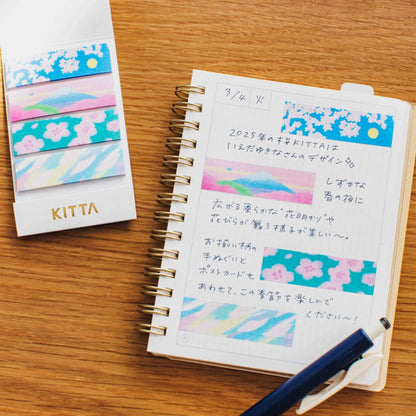 KITTA
KITTA
3/4 火
2025年の桜KITTAは
いえだゆきなさんのデザイン
しずかな
春の夜に
広がる柔らかな"花明かり"や
花びらが舞う様子が美しい〜。
お揃い柄の
手ぬぐいと
ポストカードも
あわせて、この季節を楽しんで
ください〜!